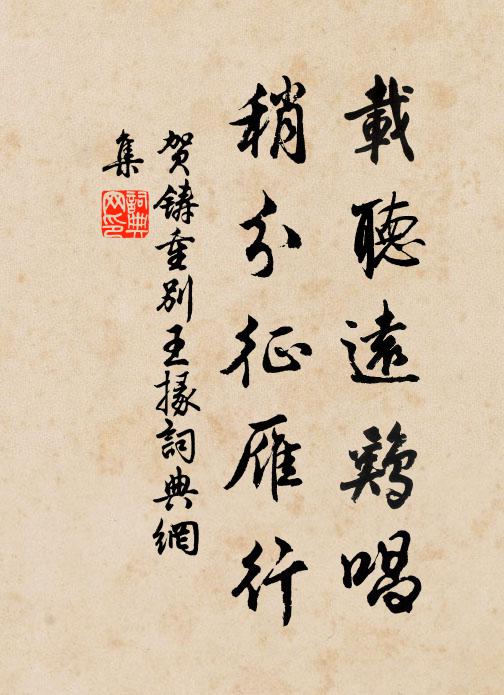 載聽遠鷄唱
稍分征雁行
賀鑄重別王掾詞典網
集
詞典
网印